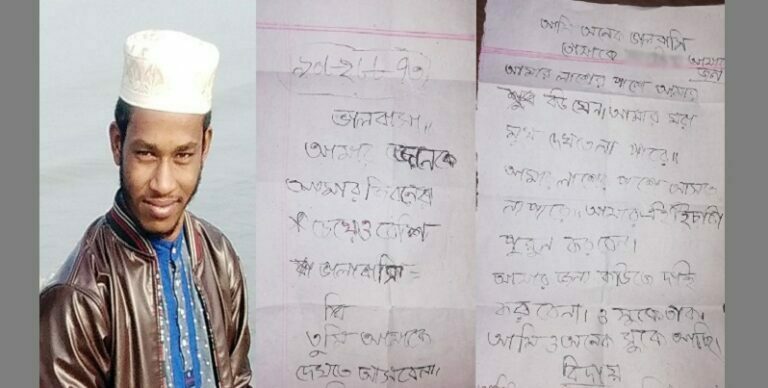 ভালবাসা,,
আমার
আমার জিবনের
চেয়েও বেশি
ভালোবাসি=
তুমি আমাকে
দেখতে আসবেনা।
আমি অনেক ভালবাসি
তোমাকে আমার
আমার লাশের পাশে আমার
বউ যেন। আমার মরা
মুখ দেখতে না পারে।।
আমার লাশের পাশে আসতে
না পারে। আমার এই
পুরুন করবেন।
আমার জন্য কাউকে দায়ি
করবেনা। ও সুখে থাক।
আমি ও অনেক সুখে আছি।
বিদায়